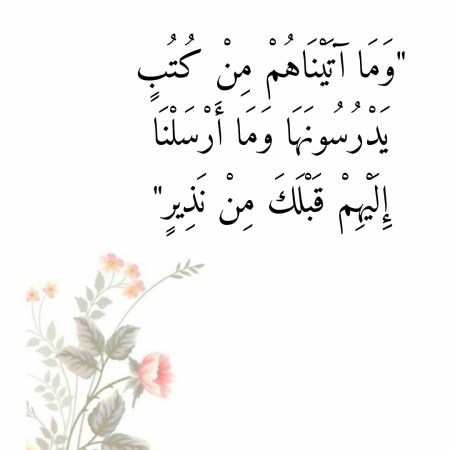 "وَمَا آتَيْنَاهُمْ مِنْ كُتُبٍ
يَدْرُسُونَهَا وَمَا أَرْسَلْنَا
إِلَيْهِمْ قَبْلَكَ مِنْ نَذِيرٍ"